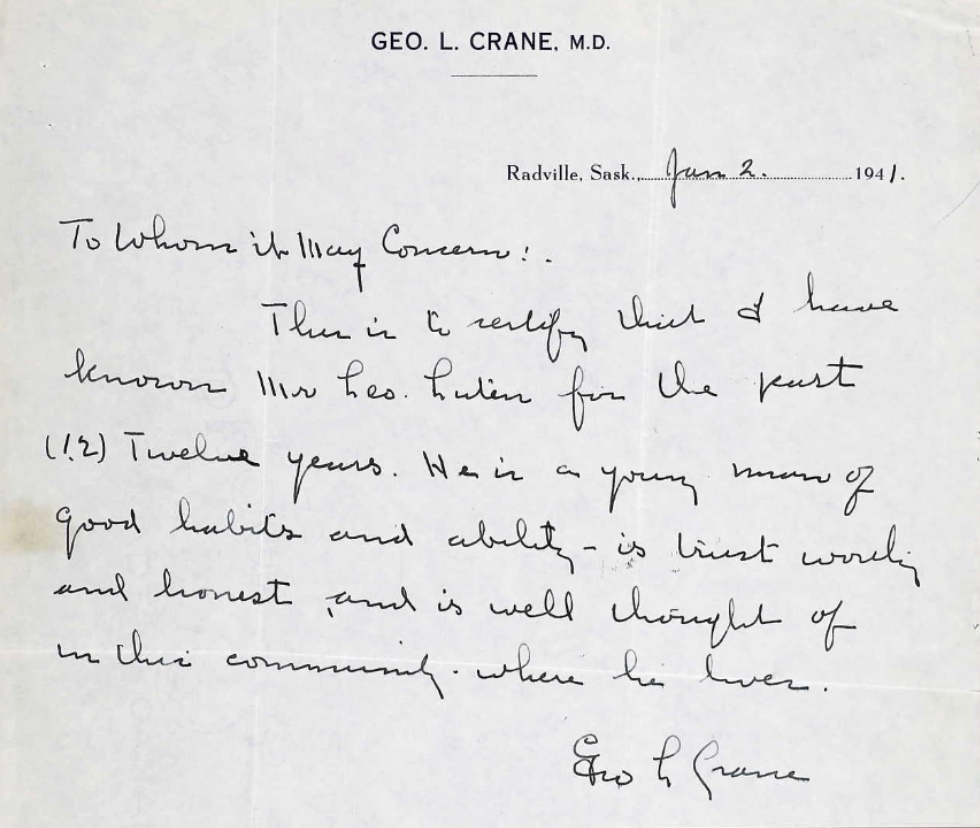 GEO. L. CRANE, M.D.
Radville, Sask., Jan 2. 1941.
To Whom it May Concern:.
This is to certify that I have
known Mr Leo. for the past
(12) Twelve years. He is a young man of
good habits and ability - is trust worthy
and honest, and is well thought of
in this community. where he lives.
Geo L Crane